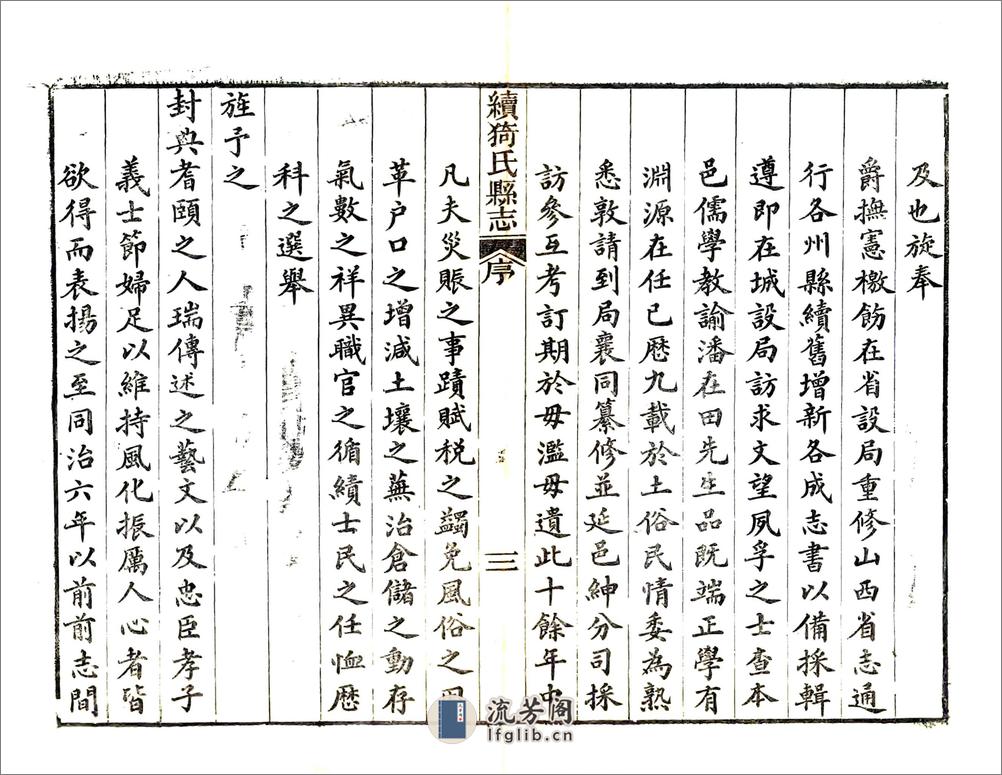 及也旋奉
爵撫憲檄飭在省設局重修山西省志通
行各州縣續舊增新各成志書以備採輯
遵即在城設局訪求文望夙孚之士查本
邑儒學教諭潘在田先生品既端正學有
淵源在任已歷九載於土俗民情委為熟
悉敦請到局襄同纂修並延邑紳分司採
訪參互考訂期於毋濫毋遺此十餘年中
續猗氏縣志 序 三
凡夫災賑之事蹟賦税之蠲免風俗之因
革户口之增減土壤之蕪治倉儲之動存
氣數之祥異職官之循績士民之任恤歷
科之選舉
旌予之
封典耆頤之人瑞傳述之藝文以及忠臣孝子
義士節婦足以維持風化振厲人心者皆
欲得而表揚之至同治六年以前前志間
流芳阁
lfglib.cn